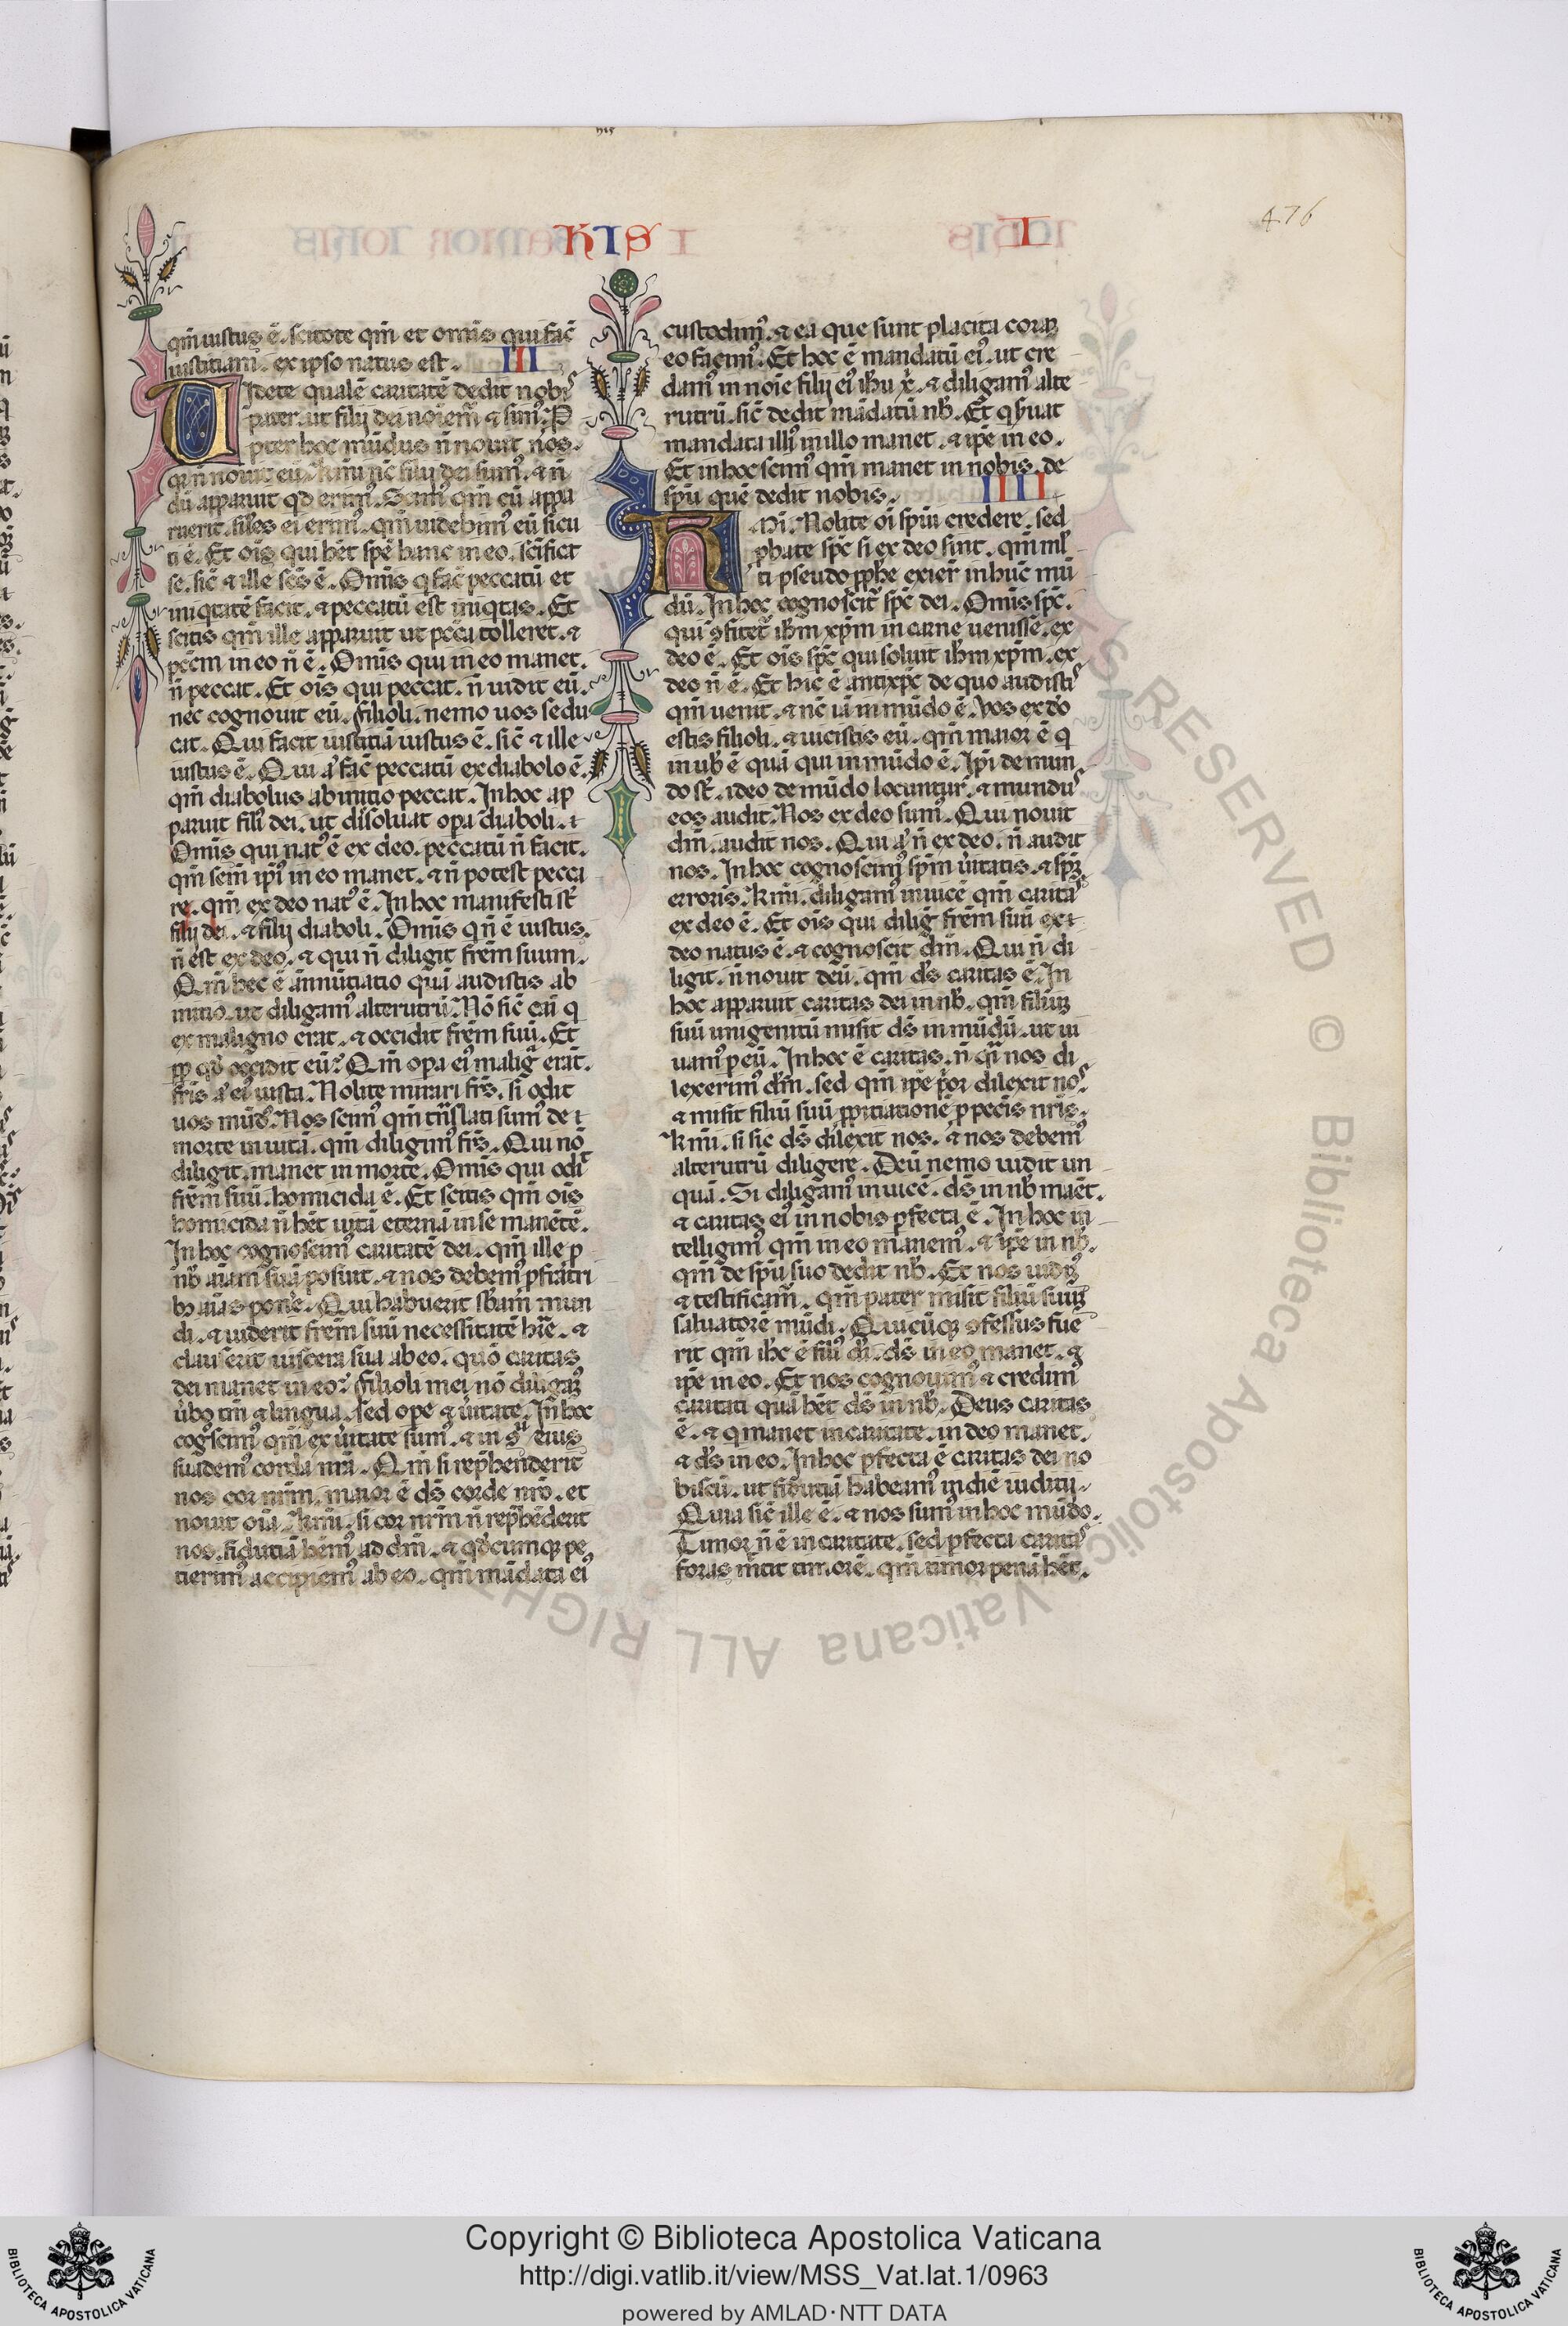 476
NIS I
qm̄ iustus ē. scitote qm̄ et omīs qui fac̄
iustitiam. ex ipso natus est. III
Videte qualē caritatē dedit nobꝭ
pater. ut filij dei noīem̄ ⁊ simꝰ. P
pter hoc mūdus n̄ nouit nos.
qr̄ n̄ nouit eū. Kmi nc̄ filij dei sumꝰ. ⁊ n̄
dū apparuit qd̄ erimꝰ. Scimꝰ qm̄ cū appa
ruerit. siłes ei erimꝰ. qm̄ uidebimꝰ eū sicu
ti ē. Et oīs qui hēt spē hanc in eo. scīficat
se. sic̄ ⁊ ille scs̄ ē. Omīs q̄ fac̄ peccatū et
iniqtatē facit. ⁊ peccatū est iniqtas. Et
scitis qm̄ ille apparuit ut pcc̄a tolleret. ⁊
pcc̄m in eo n̄ ē. Omīs qui in eo manet.
n̄ peccat. Et oīs qui peccat. n̄ uidit eū.
nec cognouit eū. filioli. nemo uos sedu
cat. Qui facit iustitiā iustus ē. sic̄ ⁊ ille
iustus ē. Qui a͛ fac̄ peccatū ex diabolo ē.
qm̄ diabolus ab initio peccat. In hoc ap
paruit filiꝰ dei. ut disoluat opa diaboli.
Omīs qui natꝰ ē ex deo. peccatū n̄ facit.
qm̄ sem̄ ipiꝰ in eo manet. ⁊ n̄ potest pecca
re. qm̄ ex deo natꝰ ē. In hoc manifesti st̄
filij dei. ⁊ filij diaboli. Omīs q n̄ ē iustus.
n̄ est ex deo. ⁊ qui n̄ diligit frēm suum.
Qm̄ hec ē annūtiatio quā audistis ab
initio. ut diligamꝰ alterutrū. Nō sic̄ cai q
ex maligno erat. ⁊ occidit frēm suū. Et
pp qd̄ occidit eū? Qm̄ opa eiꝰ malig̃ erāt.
fris̄ a͛ eiꝰ iusta. Nolite mirari frs̄. si odit
uos mūdꝰ. Nos scimꝰ qm̄ trāslati sumꝰ de
morte in uitā. qm̄ diligimꝰ frs̄. Qui nō
diligit. manet in morte. Omīs qui odit
frēm suū. homicida ē. Et scitis qm̄ oīs
homicida n̄ hēt uitā eternā in se manētē.
In hoc cognoscimꝰ caritatē dei. qm̄ ille p
nb̄ aīam suā posuit. ⁊ nos debemꝰ p fratri
bꝫ aīas pone͛. Qui habuerit sb̄am mun
di. ⁊ uiderit frēm suū necessitatē hr̄e. ⁊
clauserit uiscera sua ab eo. quō caritas
dei manet in eo? filioli mei nō diligamꝰ
ūbo tm̄ ⁊ lingua. sed ope ⁊ ūitate. In hoc
cog̃scimꝰ qm̄ ex ūitate sumꝰ. ⁊ in eius
suademꝰ corda nrā. Qm̄ si rep̄henderit
nos cor nrm̄. maior ē ds̄ corde nrō. et
nouit oīa. Kmi. si cor nrm̄ n̄ rep̄hēderit
nos. fidutiā hēmꝰ ad dm̄. ⁊ qd̄cumqꝫ pe
tierimꝰ accipiemꝰ ab eo. qm̄ mādata eiꝰ
custodimꝰ. ⁊ ea que sunt placita corā
eo facimꝰ. Et hoc ē mandatū eiꝰ. ut cre
damꝰ in noīe filij eiꝰ ihu x̄. ⁊ diligamꝰ alte
rutrū. sic̄ dedit mādatū nb̄. Et q s͛uat
mandata illiꝰ in illo manet. ⁊ ipē in eo.
Et in hoc scimꝰ qm̄ manet in nobis. de
spū quē dedit nobis. IIII
Kmi. Nolite oī spūi credere. sed
pbate spc̄ si ex deo sint. qm̄ ml̄
ti pseudo pphe exier̄ in hūc mū
dū. In hoc cognoscit͛ spc̄ dei. Omīs spc̄.
qui ꝯfitet͛ ihm̄ xpm̄ in carne uenisse. ex
deo ē. Et oīs spc̄ qui soluit ihm̄ xpm̄. ex
deo n̄ ē. Et hic ē antixpc̄ de quo audistꝭ
qm̄ uenit. ⁊ nc̄ iā in mūdo ē. Vos ex do
estis filioli. ⁊ uicistis eū. qm̄ maior ē q
in ub̄ ē quā qui in mūdo ē. Ipi de mun
do st̄. ideo de mūdo locuntur. ⁊ mundꝰ
eos audit. Nos ex deo sumꝰ. Qui nouit
dm̄. audit nos. Qui a͛ n̄ ex deo. n̄ audit
nos. In hoc cognoscimꝰ spm̄ ūitatis. ⁊ spm̄
erroris. Kmi. diligamꝰ inuicē qm̄ caritas
ex deo ē. Et oīs qui dilig̃ frēm suū ex
deo natus ē. ⁊ cognoscit dm̄. Qui n̄ di
ligit. n̄ nouit deū. qm̄ ds̄ caritas ē. In
hoc apparuit caritas dei in nb̄. qm̄ filium
suū unigenitū misit ds̄ in mūdū. ut ui
uamꝰ p eū. In hoc ē caritas. n̄ q̄i nos di
lexerimꝰ dm̄. sed qm̄ ipē p͛or dilexit nos
⁊ misit filiū suū ppitiationē p pcc̄is nrīs.
Kmi. si sic ds̄ dilexit nos. ⁊ nos debemꝰ
alterutrū diligere. Deū nemo uidit un
quā. Si diligamꝰ inuicē. ds̄ in nb̄ maēt.
⁊ caritas eiꝰ in nobis pfecta ē. In hoc in
telligimꝰ qm̄ in eo manemꝰ. ⁊ ipē in nb̄.
qm̄ de spū suo dedit nb̄. Et nos uidimꝰ
⁊ testificam̄. qm̄ pater misit filiū suum
saluatorē mūdi. Quicūqꝫ ꝯfessus fue
rit qm̄ ihc̄ ē filiꝰ di. ds̄ in eo manet. ⁊
ipē in eo. Et nos cognouimꝰ ⁊ credimꝰ
caritati quā hēt ds̄ in nb̄. Deus caritas
ē. ⁊ q manet in caritate. in deo manet.
⁊ ds̄ in eo. In hoc pfecta ē caritas dei no
biscū. ut fidutiā habeamꝰ in diē iuditij.
Quia sic̄ ille ē. ⁊ nos sumꝰ in hoc mūdo.
Timor n̄ ē in caritate. sed pfecta caritas
foras mittit timorē. qm̄ timor penā hēt.
ALL RIGHTS RESERVED © Biblioteca Apostolica Vaticana
BIBLIOTECA APOSTOLICA VATICANA
Copyright © Biblioteca Apostolica Vaticana
http://digi.vatlib.it/view/MSS_Vat.lat.1/0963
powered by AMLAD·NTT DATA
BIBLIOTECA APOSTOLICA VATICANA